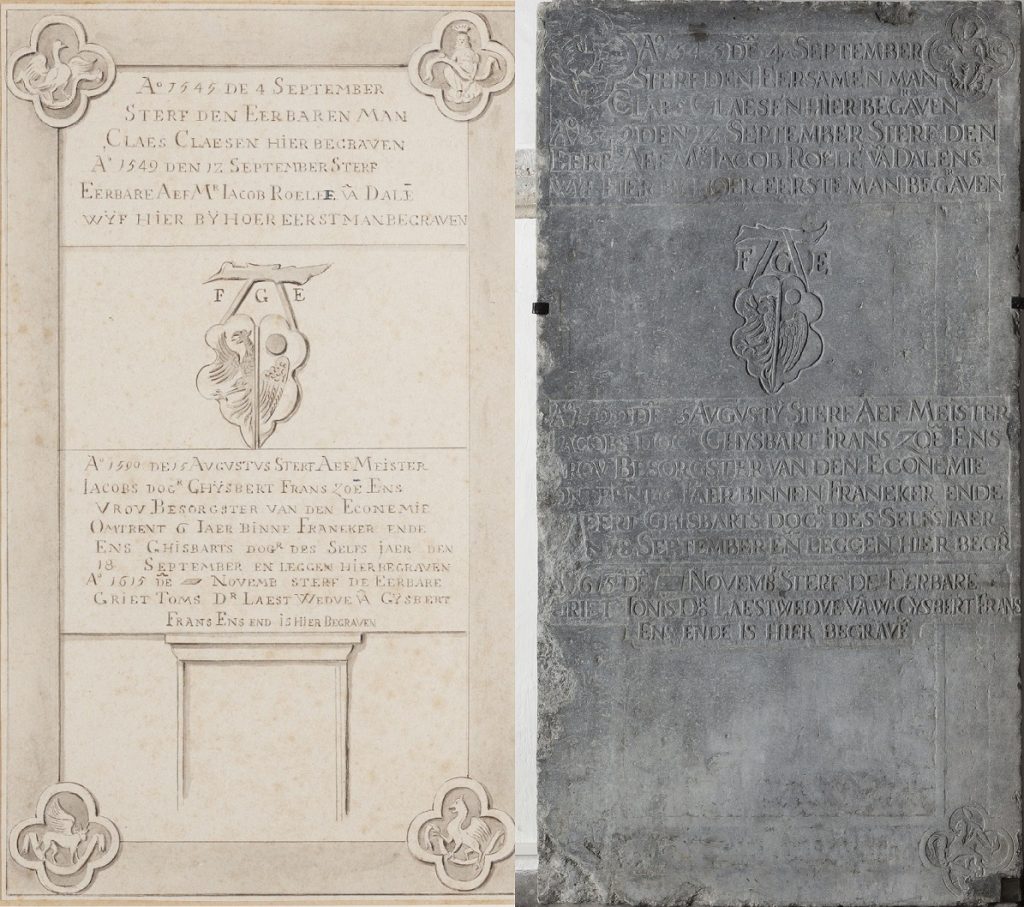 Aº 1545 DE 4 SEPTEMBER
STERF DEN EERBAREN MAN
CLAES CLAESEN HIER BEGRAVEN
Aº 1549 DEN 12 SEPTEMBER STERF
EERBARE AEF Mᴿ IACOB ROELFE VÃ DALẼ
WŸF HIER BŸ HOER EERST MAN BEGRAVEN
F G E
Aº 1590 DE 15 AUGUSTUS STERF AEF MEISTER
IACOBS DOGᴿ GHŸSBERT FRANS ZOẼ ENS
VROU BESORGSTER VAN DEN ECONEMIE
OMTRENT 6 IAER BINNE FRANEKER ENDE
ENS GHISBARTS DOGᴿ DES SELFS IAER DEN
18 SEPTEMBER EN LEGGEN HIER BEGRAVEN
Aº 1615 DẼ NOVEMB STERF DE EERBARE
GRIET TOMS Dᴿ LAEST WEDVE VÃ GYSBERT
FRANS ENS END IS HIER BEGRAVEN
Aº DẼ 4 SEPTEMBER
STERF DEN EERSAMEN MAN
CLAES CLAESEN HIER BEGRAVEN
DEN 12 SEPTEMBER STERF DEN
AEF Mᴿ IACOB ROELF VÃ DALENS
HIER HOER EERSTE MAN BEGRAVEN
F G E
AVGVSTŸ STERF AEF MEISTER
IACOBS DOGᴿ GHYSBART FRANS ZOẼ ENS
VROV BESORGSTER VAN DEN ECONEMIE
OMTRENT 6 IAER BINNEN FRANEKER ENDE
GHISBARTS DOGᴿ DES SELFS IAER
18 SEPTEMBER EN LEGGEN HIER BEGᴿ
1615 DẼ NOVEMB STERF DE EERBARE
GRIET TONIS Dᴿ LAEST WEDVE VÃ GYSBERT FRANS
ENS ENDE IS HIER BEGRAVẼ